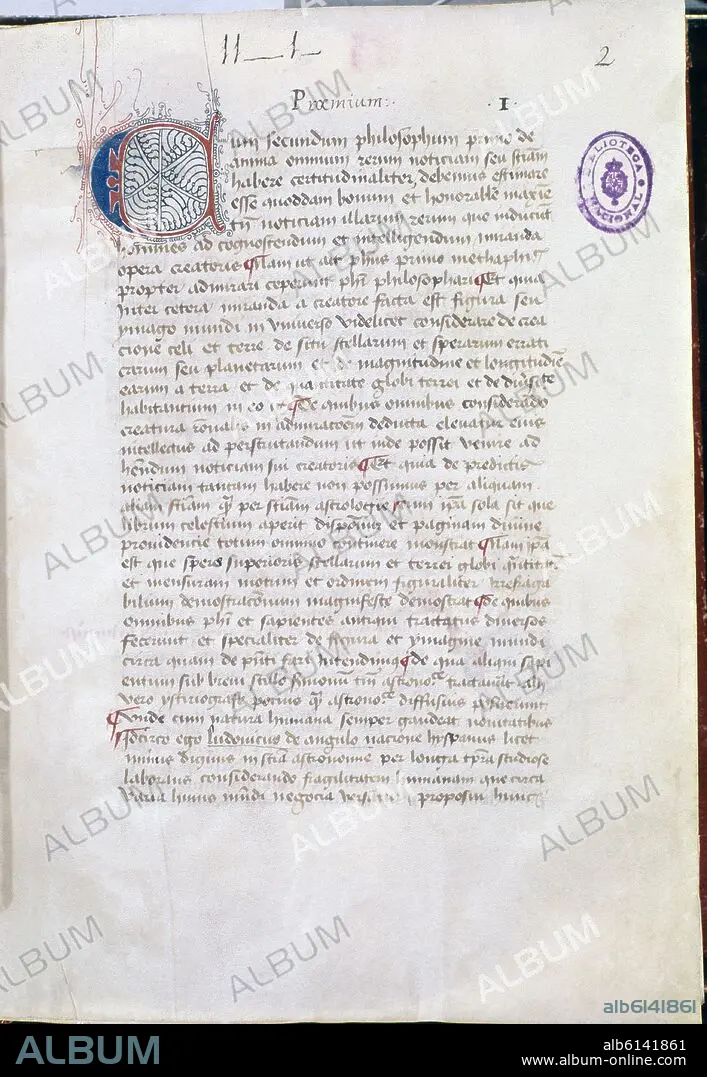 II — I —
2
Prohemium:·
·I·
Cum secundum philosophum primo de
anima omnium rerum noticiam seu sciam
habere certitudinaliter, debemus estimare
esse quoddam bonum et honorabile maxime
tum noticiam illarum rerum que inducunt
homines ad cognoscendum et intelligendum miranda
opera creatoris Nam ut ait phus primo methaphis
propter admirari ceperunt phi philosophari Et quia
inter cetera miranda a creatore facta est figura seu
ymago mundi in universo videlicet considerare de crea
cione celi et terre de situ stellarum et sperarum errati
carum seu planetarum et de magnitudine et longitudine
earum a terra et de quantitate globi terrei et de diversitate
habitantium in eo De quibus omnibus considerando
creatura in admiracionem deducta elevatur eius
intellectus ad perscrutandum ut inde possit venire ad
habendum noticiam sui creatoris Et quia de predictis
noticiam tantam habere non possumus per aliquam
aliam sciam per sciam astrologie cum ipa sola sit que
librum celestium aperit et paginam divine
providencie totum omnino continere monstrat Nam ipa
est que speras superioris stellarum et terrei globi
et mensuram motum et ordinem figuraliter irrefraga
bilium demostracionum magnifeste demostrat de quibus
omnibus phi et sapientes antiqui tractatus diversos
fecerunt et specialiter de figura et ymagine mundi
circa quam de intendimus de qua aliqui sapi
entium sub brevi stilo astrono tractaverunt alii
vero ystoriografi pocius astrono diffusius posuerunt
Unde cum natura humana semper gaudeat novitatibus
Idcirco ego Ludovicus de angulo nacione hyspanus licet
minus dignus in scia astronomie per longa tpra studiose
laborans considerando fragilitatem humanam que circa
varia huius mundi negocia versatur proposui hunc
BIBLIOTECA NACIONAL
ALBUM
alb6141861
ALBUM
alb6141861
www.album-online.com